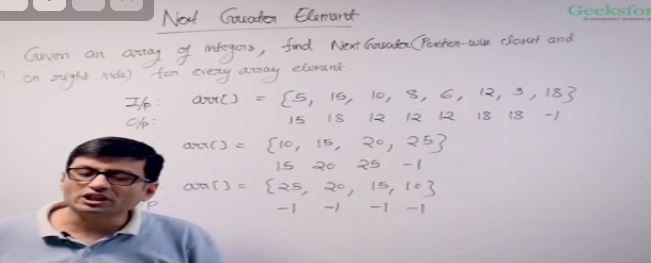 Next Greater Element
GeeksforG
Given an array of integers, find Next Greater (Position-wise closest and
on right side) for every array element.
I/p: arr[] = {5, 15, 10, 8, 6, 12, 9, 18}
O/p: 15 18 12 12 12 18 18 -1
arr[] = {10, 15, 20, 25}
15 20 25 -1
arr[] = {25, 20, 15, 10}
-1 -1 -1 -1